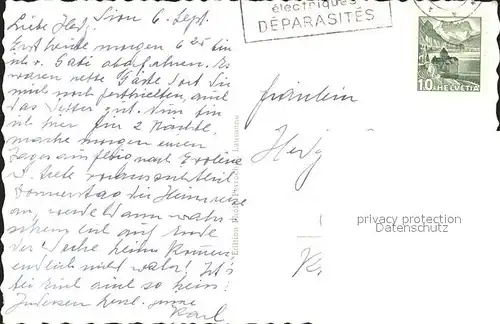 Sion 6. Sept.
Liebe Hedy.
Erst heute morgen 6 25 bin
ich v. Gabi abgefahren. Es
waren nette Gäste dort die
mich noch festhielten, auch
das Wetter gut. Nun bin
ich hier für 2 Nächte,
mache morgen einen
Tagesausflug nach Evolène
u. trete voraussichtlich
Donnerstag die Heimreise
an, werde dann wahr-
scheinlich auf Ende
der Woche heim kommen
endlich nicht wahr! Ist's
bei Euch auch so heiss?
Indessen herzl. Grüsse
Karl
électriques
DÉPARASITÉS
10 HELVETIA
Fräulein
Hedy
Edition Photo Perrochet Lausanne
privacy protection
Datenschutz